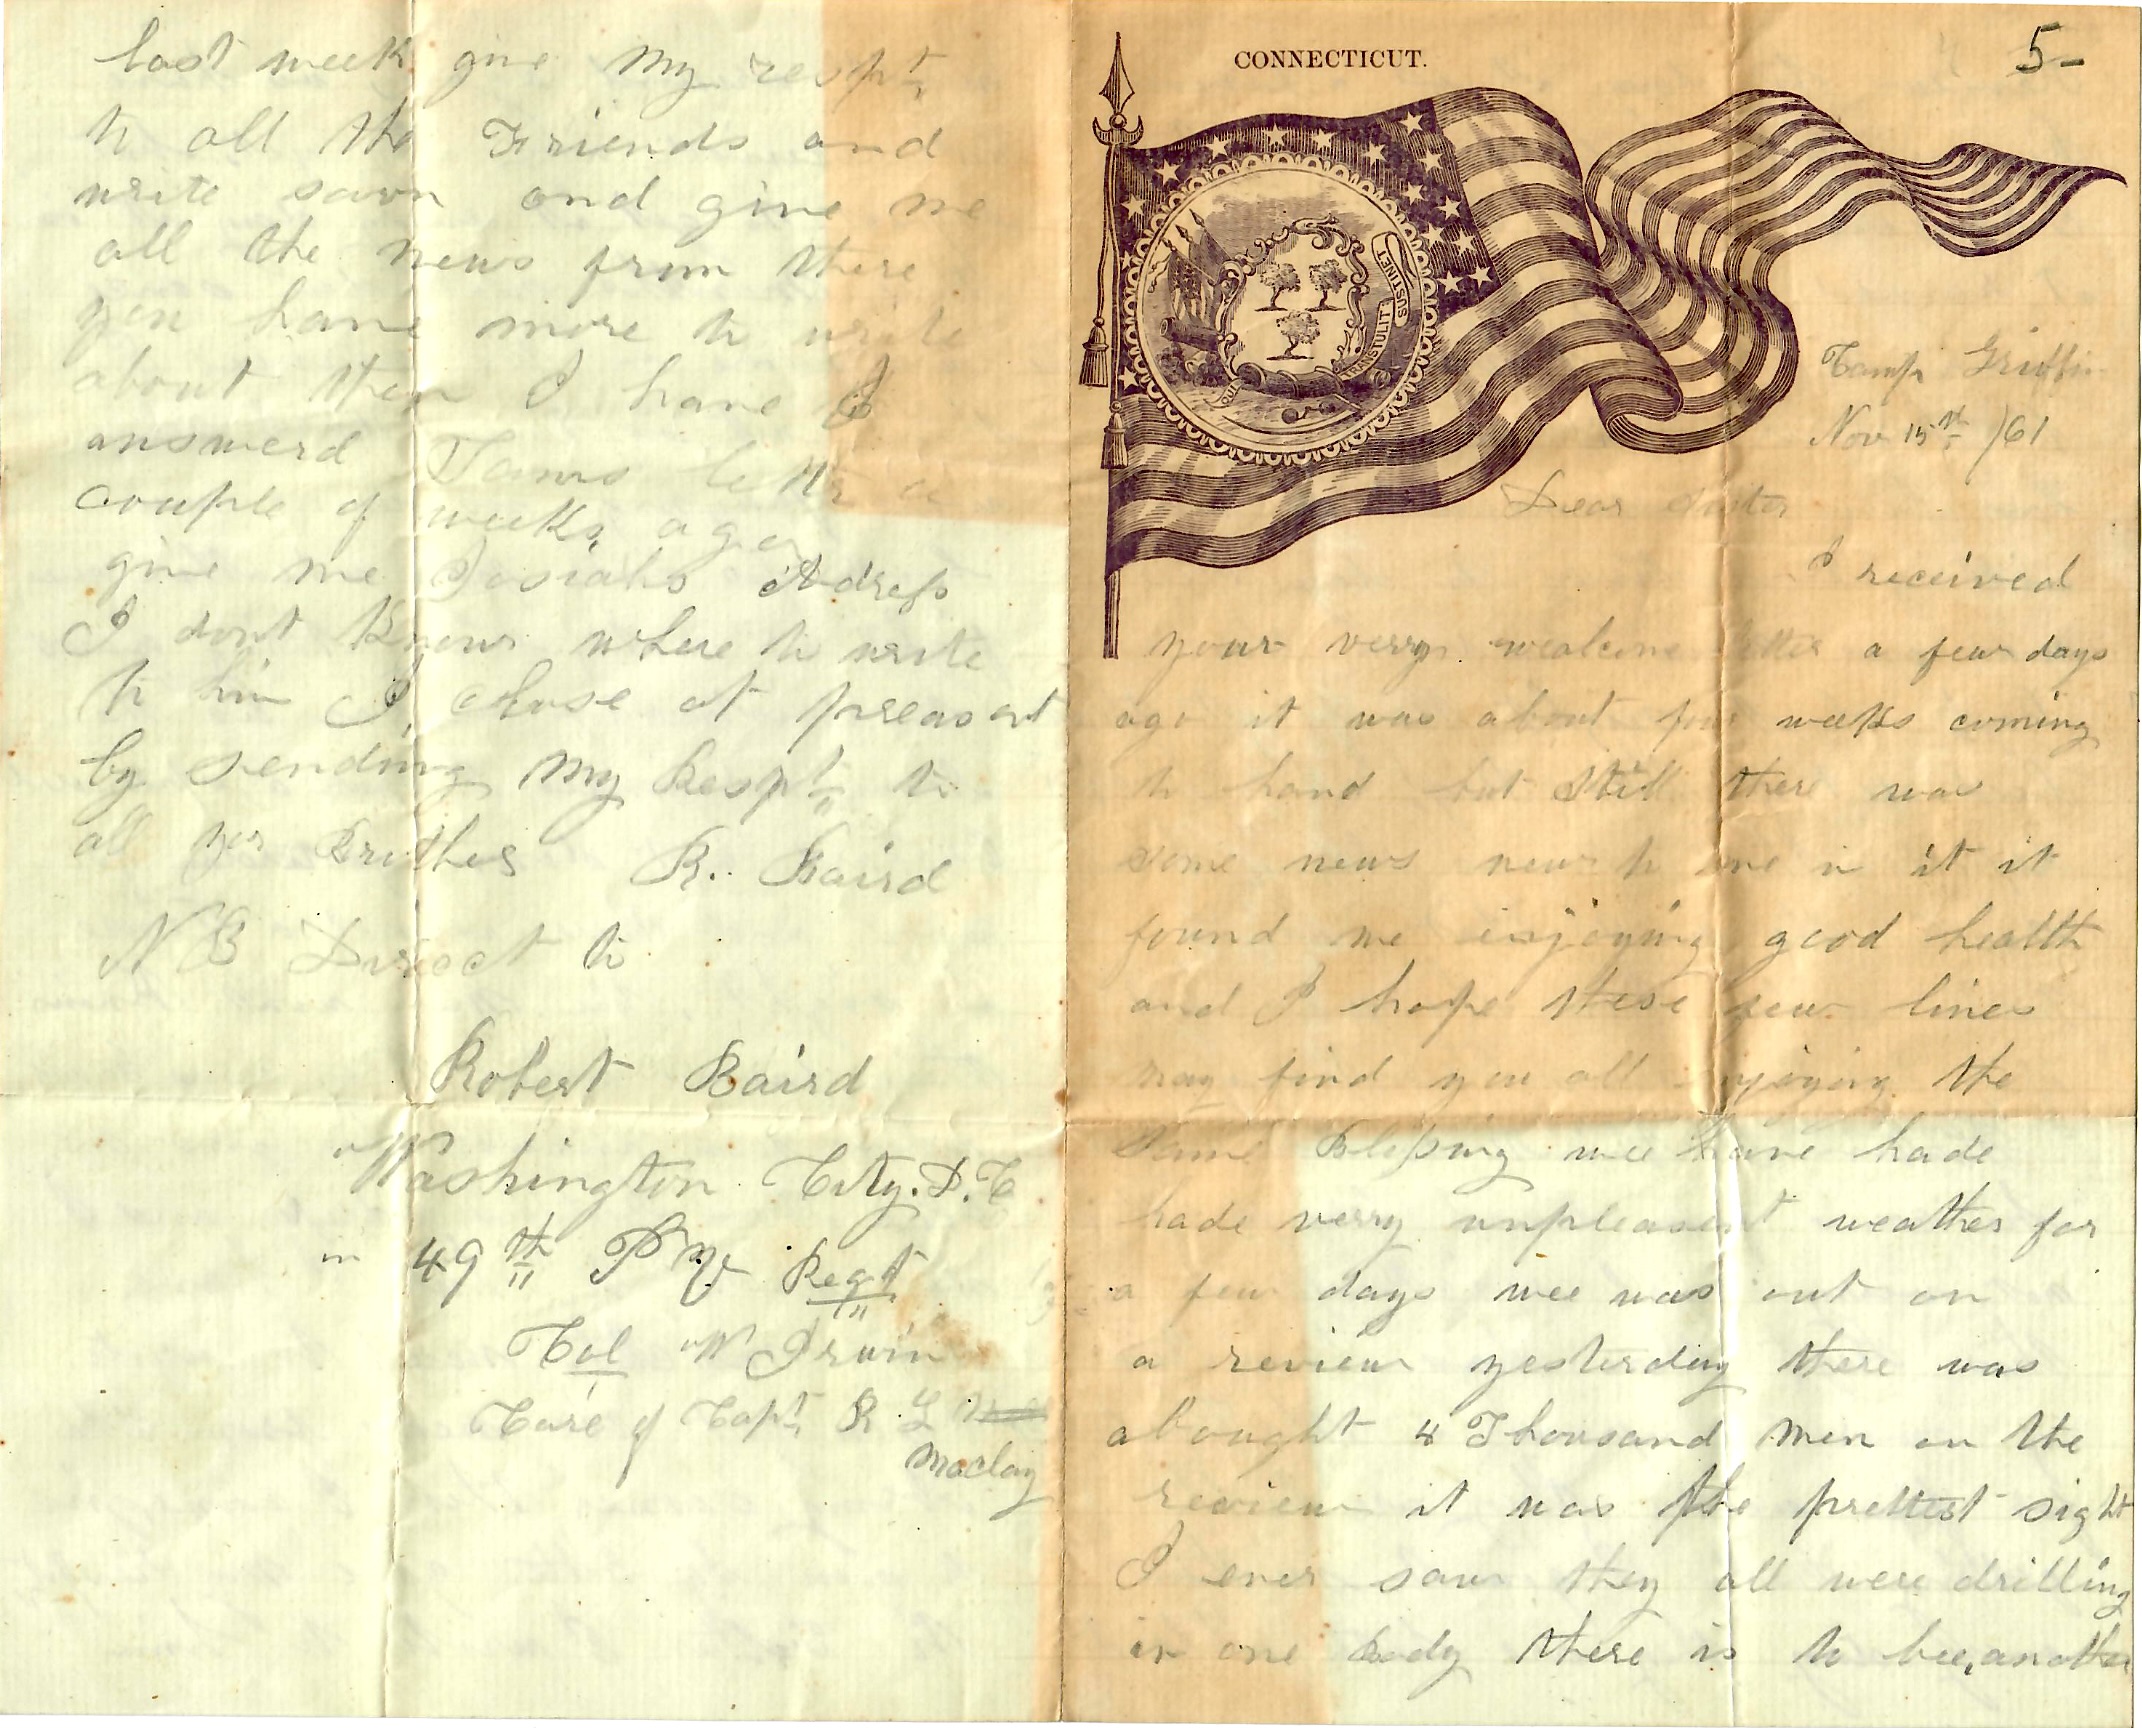 last week give my respt
to all the Friends and
write savn and give me
all the news from there
you have more to write
about then I have I
answerd Tams letter a
couple of weeks ago
give me Josiahs Adress
I dont know where to write
to him I close at preasant
by sending my Respt to
all yor Brother R. Baird
NB Direct to
Robert Baird
Washington City. D. C
in 49th Pa V Regt
Col W Irwin
Care of Capt R G
Maclay
CONNECTICUT.
5-
QUI TRANSTULIT SUSTINET
Camp Griffin
Nov 15th /61
Dear Sister
I received
your verry wealcome letter a few days
ago it was about four weeks coming
to hand but still there was
some news new to me in it it
found me injoying good health
and I hope these few lines
may find you all injoying the
same Blessing wee have hade
hade verry unpleasent weather for
a few days wee was out on
a review yesterday there was
abought 4 Thousand men on the
review it was the prettest sight
I ever saw they all were drilling
in one Body there is to bee another